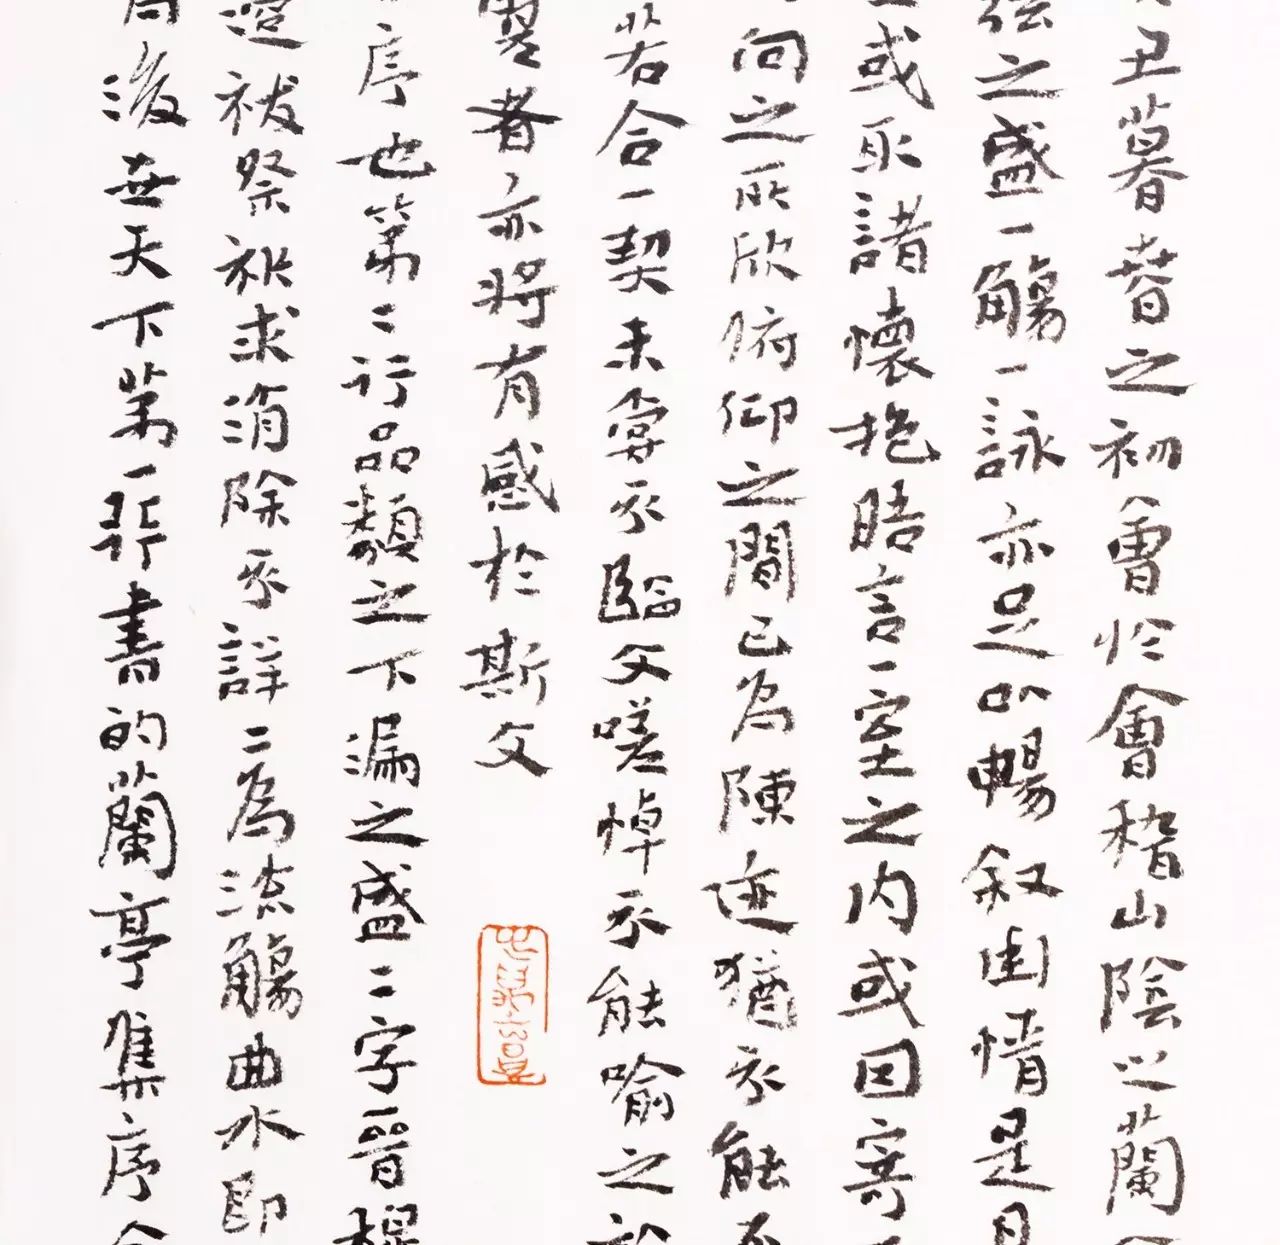 丑暮春之初會於會稽山陰之蘭
弦之盛一觴一詠亦足以暢叙幽情是日
或取諸懷抱晤言一室之內或因寄
向之所欣俯仰之間已為陳迹猶不能不
若合一契未嘗不臨文嗟悼不能喻之於
覽者亦將有感於斯文
序也第二行品類之下漏之盛二字晉穆
祓祭祈求消除不詳二為流觴曲水即
後世天下第一行書的蘭亭集序